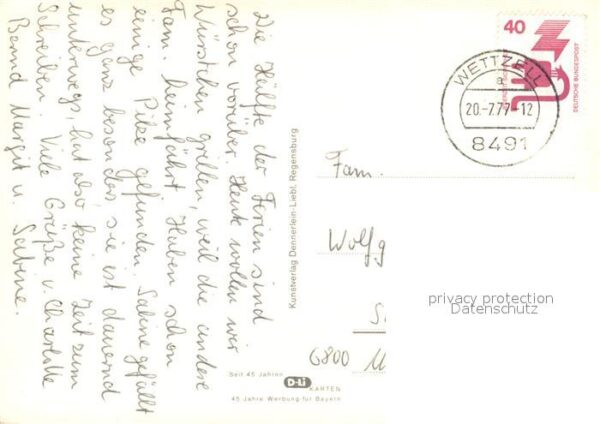 Die Hälfte der Ferien sind
schon vorüber. Heute wollen wir
Würstchen grillen, weil die andere
Fam. heimfährt. Haben schon
einige Pilze gefunden. Sabine gefällt
es ganz besonders, sie ist dauernd
unterwegs, hat also keine Zeit zum
Schreiben. Viele Grüße v. Charlotte
Bernd Margit u. Sabine.
Kunstverlag Dennerlein-Liebl, Regensburg
Seit 45 Jahren
D-Li KARTEN
45 Jahre Werbung für Bayern
40
DEUTSCHE BUNDESPOST
WETTZELL
a
20.-7.77-12
8491
Fam.
Wolfg
S
6800
privacy protection
Datenschutz